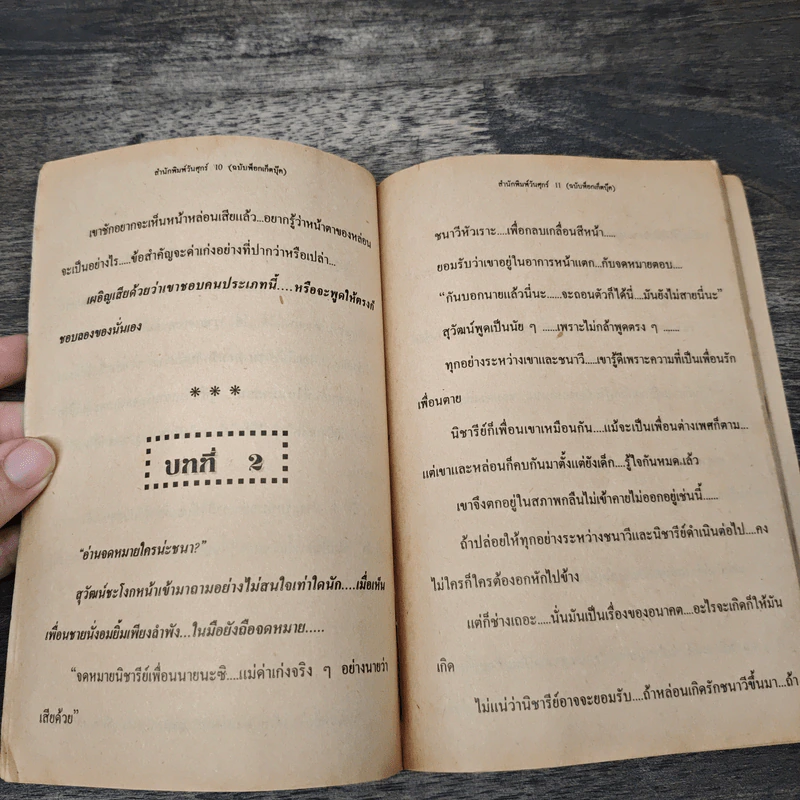 สำนักพิมพ์วันศุกร์ 10 (ฉบับพ็อกเก็ตบุ๊ค)
เขาชักอยากจะเห็นหน้าหล่อนเสียแล้ว...อยากรู้ว่าหน้าตาของหล่อน
จะเป็นอย่างไร.....ข้อสำคัญจะด่าเก่งอย่างที่ปากว่าหรือเปล่า...
เผอิญเสียด้วยว่าเขาชอบคนประเภทนี้....หรือจะพูดให้ตรงก็
ชอบลองของนั่นเอง
***
บทที่ 2
“อ่านจดหมายใครน่ะชนา?”
สุวัฒน์ชะโงกหน้าเข้ามาถามอย่างไม่สนใจเท่าใดนัก....เมื่อเห็น
เพื่อนชายนั่งอมยิ้มเพียงลำพัง...ในมือยังถือจดหมาย.....
“จดหมายนิชารีย์เพื่อนนายนะซิ....แม่ด่าเก่งจริง ๆ อย่างนายว่า
เสียด้วย”
สำนักพิมพ์วันศุกร์ 11 (ฉบับพ็อกเก็ตบุ๊ค)
ชนาวีหัวเราะ....เพื่อกลบเกลื่อนสีหน้า.....
ยอมรับว่าเขาอยู่ในอาการหน้าแตก...กับจดหมายตอบ....
“กันบอกนายแล้วนี่นะ.....จะถอนตัวก็ได้นี่....มันยังไม่สายนี่นะ”
สุวัฒน์พูดเป็นนัย ๆ ......เพราะไม่กล้าพูดตรง ๆ .......
ทุกอย่างระหว่างเขาและชนาวี....เขารู้ดีเพราะความที่เป็นเพื่อนรัก
เพื่อนตาย
นิชารีย์ก็เพื่อนเขาเหมือนกัน....แม้จะเป็นเพื่อนต่างเพศก็ตาม...
แต่เขาและหล่อนก็คบกันมาตั้งแต่ยังเด็ก....รู้ใจกันหมด.แล้ว
เขาจึงตกอยู่ในสภาพกลืนไม่เข้าคายไม่ออกอยู่เช่นนี้......
ถ้าปล่อยให้ทุกอย่างระหว่างชนาวีและนิชารีย์ดำเนินต่อไป....คง
ไม่ใครก็ใครต้องอกหักไปข้าง
แต่ก็ช่างเถอะ.....นั่นมันเป็นเรื่องของอนาคต....อะไรจะเกิดก็ให้มัน
เกิด
ไม่แน่ว่านิชารีย์อาจจะยอมรับ....ถ้าหล่อนเกิดรักชนาวีขึ้นมา...ถ้า